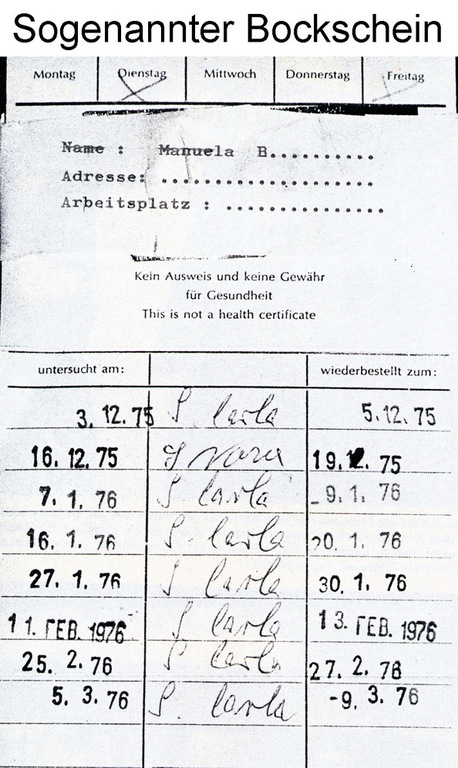 Sogenannter Bockschein
Montag Dienstag Mittwoch Donnerstag Freitag
Name : Manuela B..........
Adresse: ..................
Arbeitsplatz : .............
Kein Ausweis und keine Gewähr
für Gesundheit
This is not a health certificate
untersucht am: wiederbestellt zum:
3. 12. 75 5.12. 75
16. 12. 75 19.12. 75
7. 1. 76 -9. 1. 76
16. 1. 76 20. 1. 76
27. 1. 76 30. 1. 76
11. FEB. 1976 13. FEB. 1976
25. 2. 76 27. 2. 76
5. 3. 76 -9. 3. 76